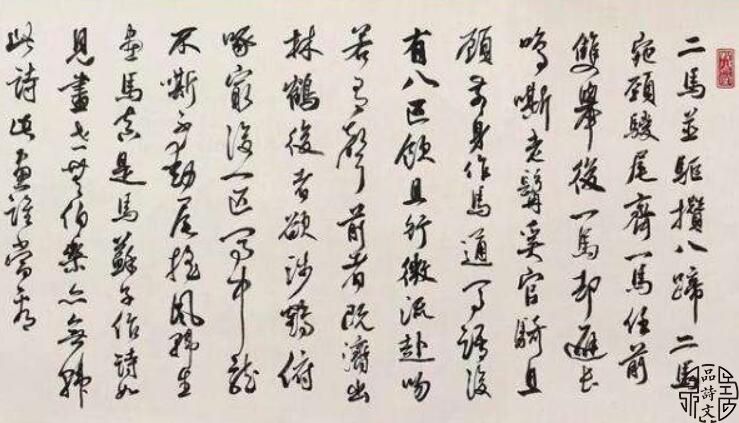 二馬並驅攢八蹄二馬
宛頸駿尾齊一馬任前
雙舉後一馬却避長
鳴嘶老髯奚官騎且
顧前身作馬通馬語後
有八匹飲且行微流赴吻
若有聲前者既濟出
林鶴後者欲涉鶴俯
啄最後一匹馬中龍
不嘶不動尾搖風韓生
畫馬真是馬蘇子作詩如
見畫世無伯樂亦無韓
此詩此畫誰當看
品詩文